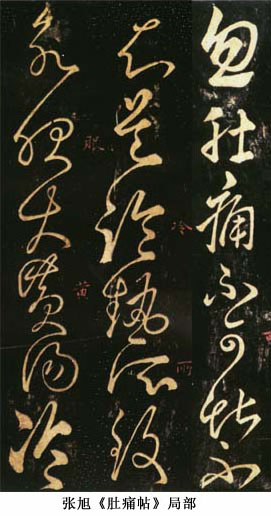 忽肚痛不可堪不
知是冷熱所致
欲服大黃湯冷
冷
眼
张旭《肚痛帖》局部